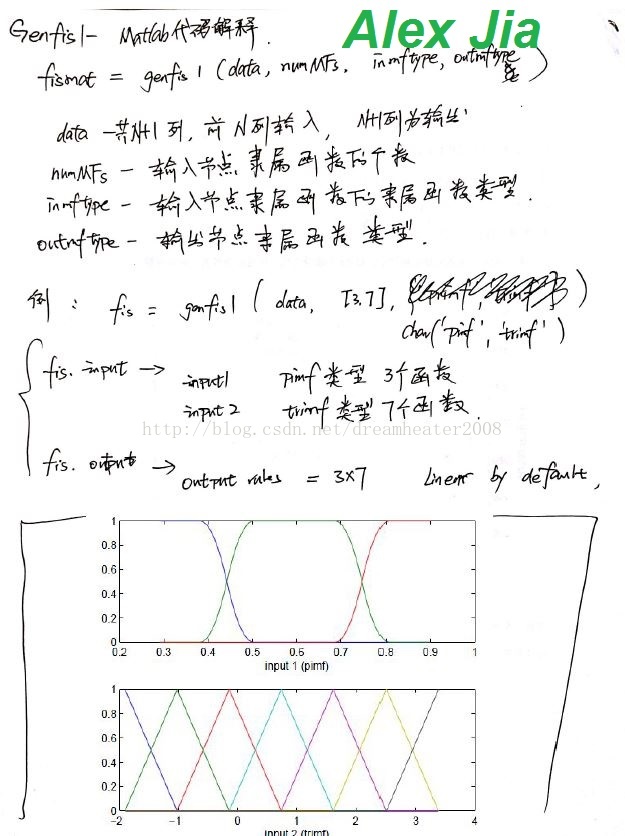 Genfis1- Matlab代码解释.
Alex Jia
fismat = genfis1 (data, numMFs, inmftype, outmftype)
data - 共N+1列, 前N列输入, N+1列为输出
numMFs - 输入节点隶属函数的个数
inmftype - 输入节点隶属函数的隶属函数类型.
outmftype - 输出节点隶属函数 类型.
例: fis = genfis1 ( data, [3,7], )
char('pimf', 'trimf')
fis. input → input1 pimf 类型 3个函数
input2 trimf 类型 7个函数.
http://blog.csdn.net/dreamheater2008
fis. output → output rules = 3×7 Linear by default,
1
0.8
0.6
0.4
0.2
0
0.2 0.3 0.4 0.5 0.6 0.7 0.8 0.9 1
input 1 (pimf)
1
0.8
0.6
0.4
0.2
0
-2 -1 0 1 2 3 4
input 2 (trimf)